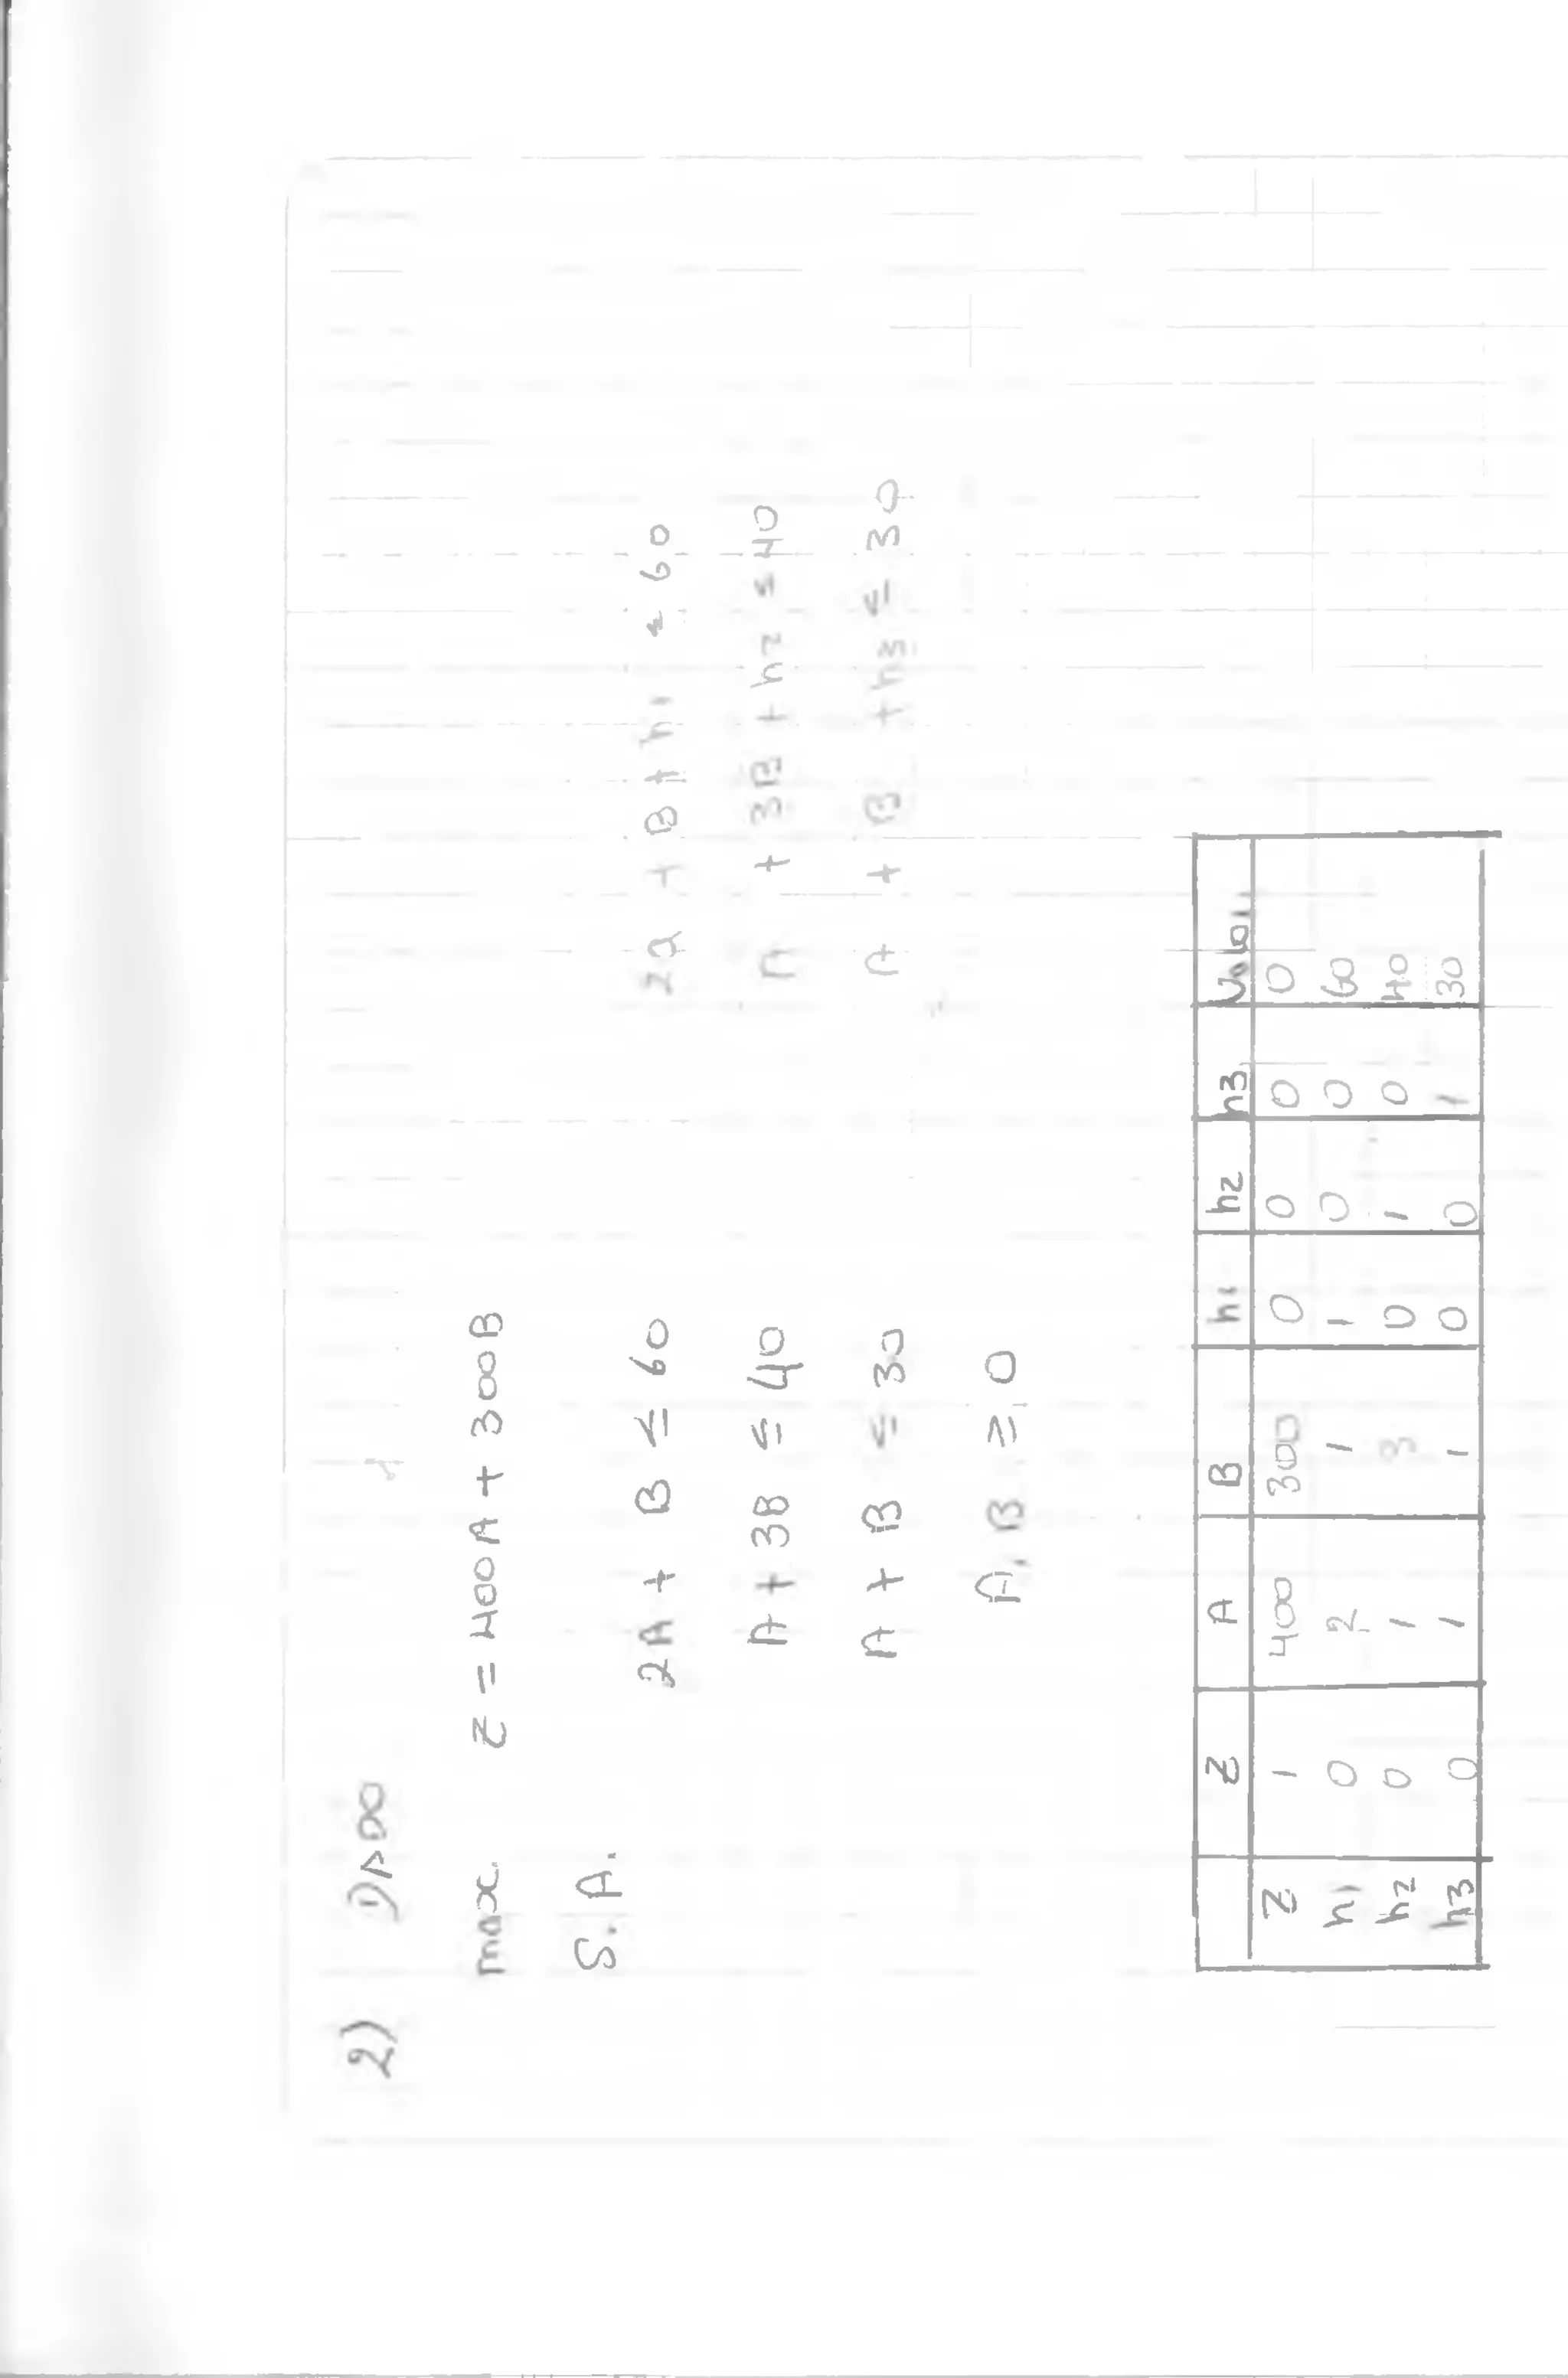 2) Dado
max. Z = 400A + 300B
S. A.
2A + B ≤ 60
A + 3B ≤ 40
A + B ≤ 30
A, B ≥ 0
2A + B + h1 ≤ 60
A + 3B + h2 ≤ 40
A + B + h3 ≤ 30
Z A B h1 h2 h3 Valor
Z 1 400 300 0 0 0 0
h1 0 2 1 1 0 0 60
h2 0 1 3 0 1 0 40
h3 0 1 1 0 0 1 30